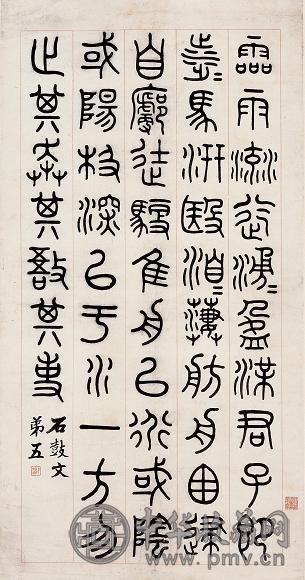 霝雨流迄湧=盈渫君子即
涉=馬汧殹洎=萋舫舟囪逮
自廓徒馭隹舟以衍或陰
或陽极深以于水一方勿
止其奔其敔其事
石鼓文
第五
中华收藏网
www.pmv.cn